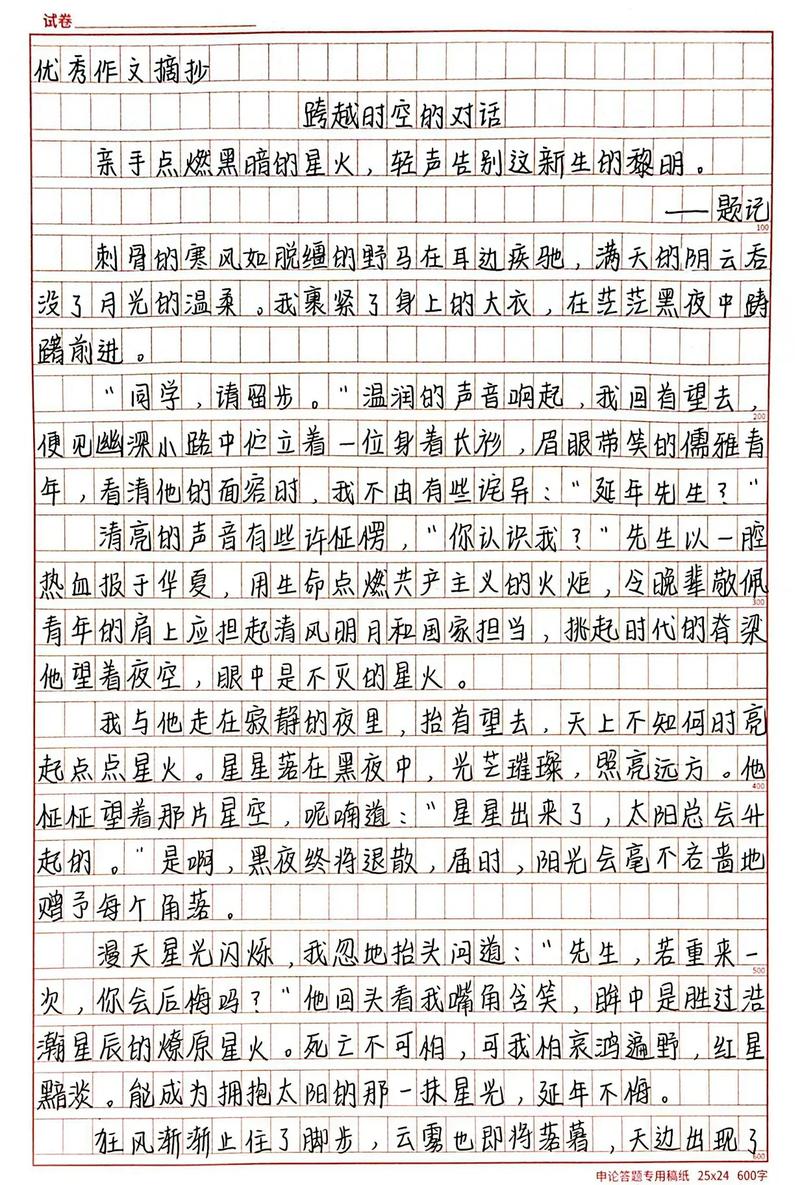 试卷
优秀作文摘抄
跨越时空的对话
亲手点燃黑暗的星火，轻声告别这新生的黎明。
——题记
100
刺骨的寒风如脱缰的野马在耳边疾驰，满天的阴云吞
没了月光的温柔。我裹紧了身上的大衣，在茫茫黑夜中踌
躇前进。
“同学，请留步。”温润的声音响起，我回首望去，
200
便见幽深小路中伫立着一位身着长衫，眉眼带笑的儒雅青
年，看清他的面容时，我不由有些诧异：“延年先生？”
清亮的声音有些许怔愣，“你认识我？”先生以一腔
热血报于华夏，用生命点燃共产主义的火炬，令晚辈敬佩
300
青年的肩上应担起清风明月和国家担当，挑起时代的脊梁
他望着夜空，眼中是不灭的星火。
我与他走在寂静的夜里，抬首望去，天上不知何时亮
起点点星火。星星落在黑夜中，光芒璀璨，照亮远方。他
400
怔怔望着那片星空，呢喃道：“星星出来了，太阳总会升
起的。”是啊，黑夜终将退散，届时，阳光会毫不吝啬地
赠予每个角落。
漫天星光闪烁，我忽地抬头问道：“先生，若重来一
500
次，你会后悔吗？”他回头看我嘴角含笑，眸中是胜过浩
瀚星辰的燎原星火。死亡不可怕，可我怕哀鸿遍野，红星
黯淡。能成为拥抱太阳的那一抹星光，延年不悔。
狂风渐渐止住了脚步，云雾也即将落幕，天边出现了
600
申论答题专用稿纸 25x24 600字